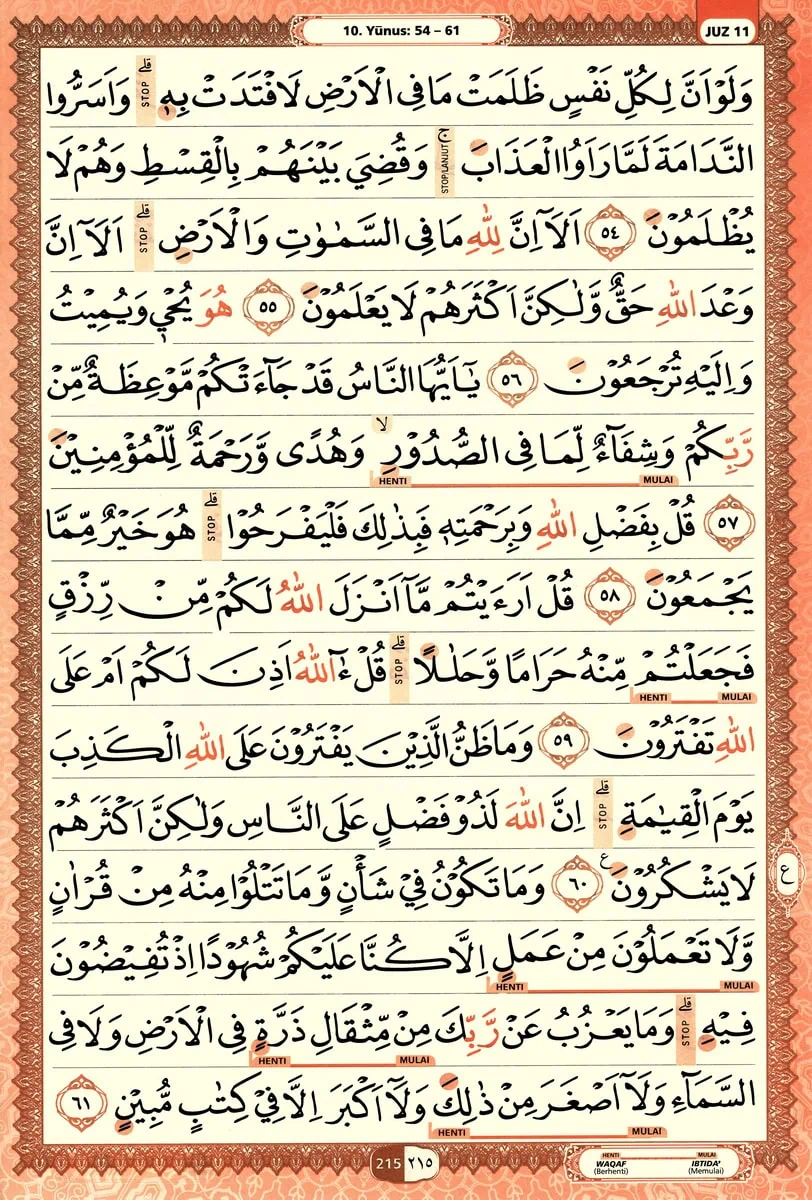 10. Yūnus: 54 – 61
JUZ 11
وَلَوْ اَنَّ لِكُلِّ نَفْسٍ ظَلَمَتْ مَا فِى الْاَرْضِ لَافْتَدَتْ بِهٖ ۗ STOP وَاَسَرُّوا
النَّدَامَةَ لَمَّا رَاَوُا الْعَذَابَ ۚ STOP/LANJUT وَقُضِيَ بَيْنَهُمْ بِالْقِسْطِ وَهُمْ لَا
يُظْلَمُوْنَ ٥٤ اَلَآ اِنَّ لِلّٰهِ مَا فِى السَّمٰوٰتِ وَالْاَرْضِ ۗ STOP اَلَآ اِنَّ
وَعْدَ اللّٰهِ حَقٌّ وَّلٰكِنَّ اَكْثَرَهُمْ لَا يَعْلَمُوْنَ ٥٥ هُوَ يُحْيٖ وَيُمِيْتُ
وَاِلَيْهِ تُرْجَعُوْنَ ٥٦ يٰٓاَيُّهَا النَّاسُ قَدْ جَاۤءَتْكُمْ مَّوْعِظَةٌ مِّنْ
رَّبِّكُمْ وَشِفَاۤءٌ لِّمَا فِى الصُّدُوْرِۙ وَهُدًى وَّرَحْمَةٌ لِّلْمُؤْمِنِيْنَ
HENTI MULAI
٥٧ قُلْ بِفَضْلِ اللّٰهِ وَبِرَحْمَتِهٖ فَبِذٰلِكَ فَلْيَفْرَحُوْا ۗ STOP هُوَ خَيْرٌ مِّمَّا
يَجْمَعُوْنَ ٥٨ قُلْ اَرَءَيْتُمْ مَّآ اَنْزَلَ اللّٰهُ لَكُمْ مِّنْ رِّزْقٍ
فَجَعَلْتُمْ مِّنْهُ حَرَامًا وَّحَلٰلًا ۗ STOP قُلْ ءٰۤاللّٰهُ اَذِنَ لَكُمْ اَمْ عَلَى
HENTI MULAI
اللّٰهِ تَفْتَرُوْنَ ٥٩ وَمَا ظَنُّ الَّذِيْنَ يَفْتَرُوْنَ عَلَى اللّٰهِ الْكَذِبَ
يَوْمَ الْقِيٰمَةِ ۗ STOP اِنَّ اللّٰهَ لَذُوْ فَضْلٍ عَلَى النَّاسِ وَلٰكِنَّ اَكْثَرَهُمْ
لَا يَشْكُرُوْنَ ࣖ ٦٠ وَمَا تَكُوْنُ فِيْ شَأْنٍ وَّمَا تَتْلُوْا مِنْهُ مِنْ قُرْاٰنٍ
ع
وَّلَا تَعْمَلُوْنَ مِنْ عَمَلٍ اِلَّا كُنَّا عَلَيْكُمْ شُهُوْدًا اِذْ تُفِيْضُوْنَ
HENTI MULAI
فِيْهِ ۗ STOP وَمَا يَعْزُبُ عَنْ رَّبِّكَ مِنْ مِّثْقَالِ ذَرَّةٍ فِى الْاَرْضِ وَلَا فِى
HENTI MULAI
السَّمَاۤءِ وَلَآ اَصْغَرَ مِنْ ذٰلِكَ وَلَآ اَكْبَرَ اِلَّا فِيْ كِتٰبٍ مُّبِيْنٍ ٦١
HENTI MULAI
215 ٢١٥
HENTI MULAI
WAQAF IBTIDA'
(Berhenti) (Memulai)